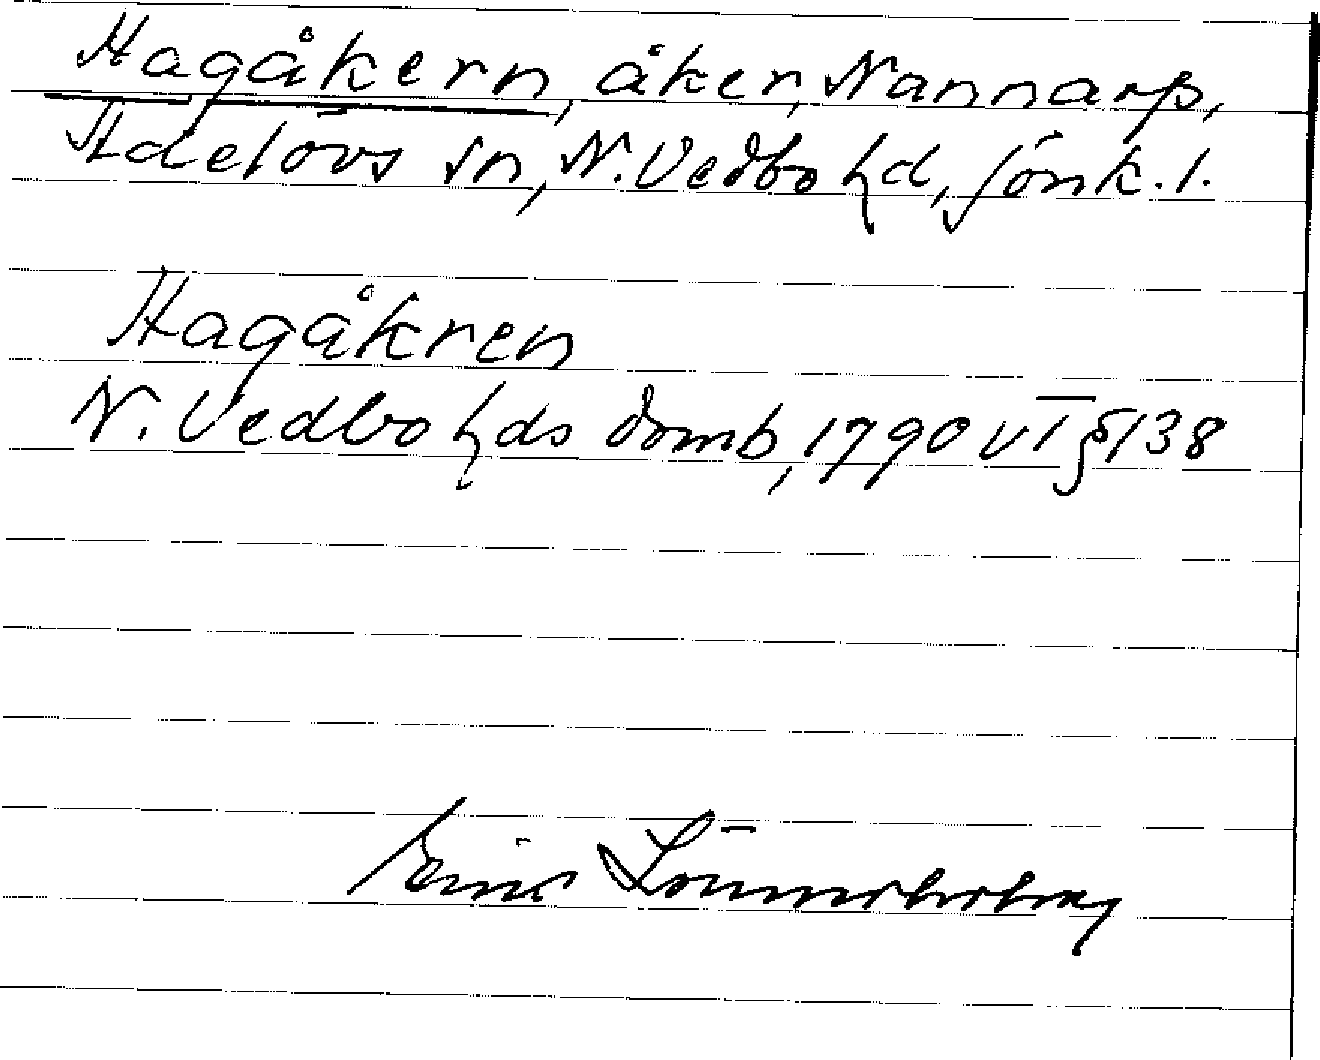 Hagåkern, åker, Nannarp,
Adelövs sn, N. Vedbo hd, Jönk. l.
Hagåkren
N. Vedbo hds domb, 1790 VT § 138